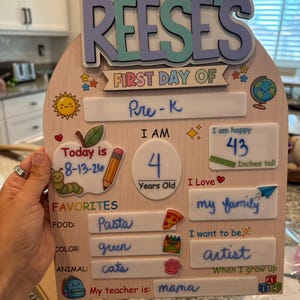 REESE'S
FIRST DAY OF
Pre-K
I AM
4
Years Old
I am happy
43
Inches tall
Today is
8-13-26
I Love
my family
FAVORITES
FOR: Pasta
COLOR: green
ANIMAL: cats
I want to be
artist
When I grow up
My teacher is: mama